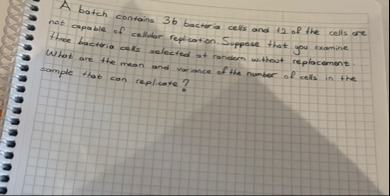 A batch contains 36 bacteria cells and 12 of the cells are
not capable of cellular replication. Suppose that you examine
three bacteria cells selected at random without replacement.
What are the mean and variance of the number of cells in the
sample that can replicate?